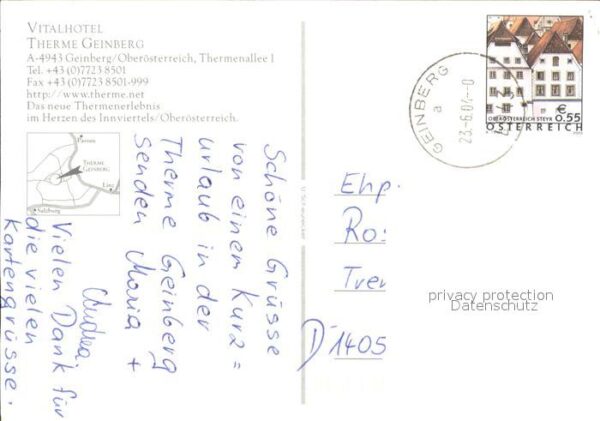 VITALHOTEL
THERME GEINBERG
A-4943 Geinberg/Oberösterreich, Thermenallee 1
Tel. +43 (0)7723 8501
Fax +43 (0)7723 8501-999
http://www.therme.net
Das neue Thermenerlebnis
im Herzen des Innviertels/Oberösterreich.
Passau
THERME
GEINBERG
Linz
Salzburg
Schöne Grüsse
von einem Kurz=
urlaub in der
Therme Geinberg
senden Maria +
Andrea.
Vielen Dank für
die vielen
Kartengrüsse.
GEINBERG
a
23.-6.04-
€
0.55
OBERÖSTERREICH STEYR
ÖSTERREICH
Ehp.
Ro:
Trer
D-1405
privacy protection
Datenschutz